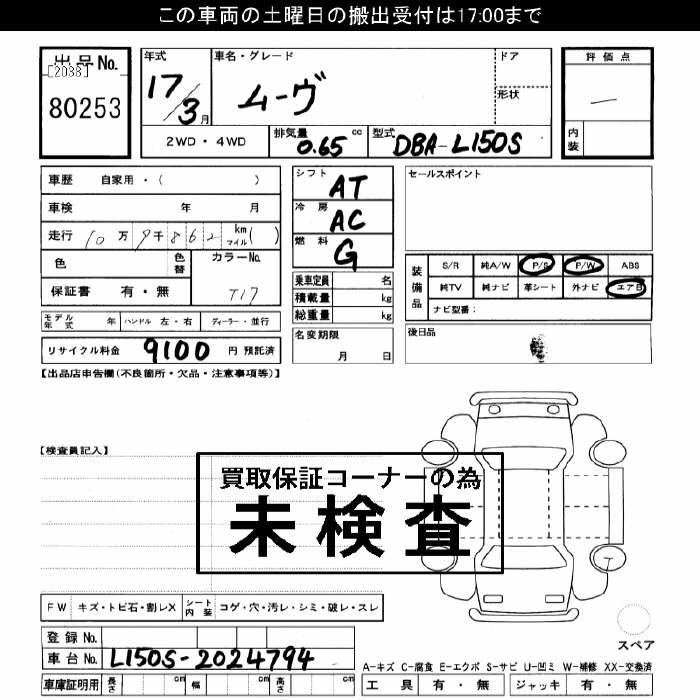 この車両の土曜日の搬出受付は17:00まで
出品No.
[2038]
80253
年式
17/3月
車名・グレード
ムーヴ
ドア
形状
評価点
—
内装
2WD・4WD
排気量 0.65 cc
型式 DBA-L150S
車歴 自家用・( )
車検 年 月
走行 10万 9千 8 6 2 km マイル( )
色 色替
カラーNo.
T17
保証書 有・無
シフト AT
冷房 AC
燃料 G
乗車定員 名
積載量 kg
総重量 kg
名変期限
月 日
セールスポイント
装備品
S/R 純A/W P/S P/W ABS
純TV 純ナビ 革シート 外ナビ エアB
ナビ型番:
後日品
モデル年式 年 ハンドル 左・右 ディーラー・並行
リサイクル料金 9100 円 預託済
【出品店申告欄(不良箇所・欠品・注意事項等)】
【検査員記入】
買取保証コーナーの為
未検査
FW キズ・トビ石・割レX
シート内装 コゲ・穴・汚レ・シミ・破レ・スレ
登録No.
車台No. L150S-2024794
車庫証明用 長さ cm 幅 cm 高さ cm
スペア
A-キズ C-腐食 E-エクボ S-サビ U-凹ミ W-補修 XX-交換済
工具 有・無 ジャッキ 有・無